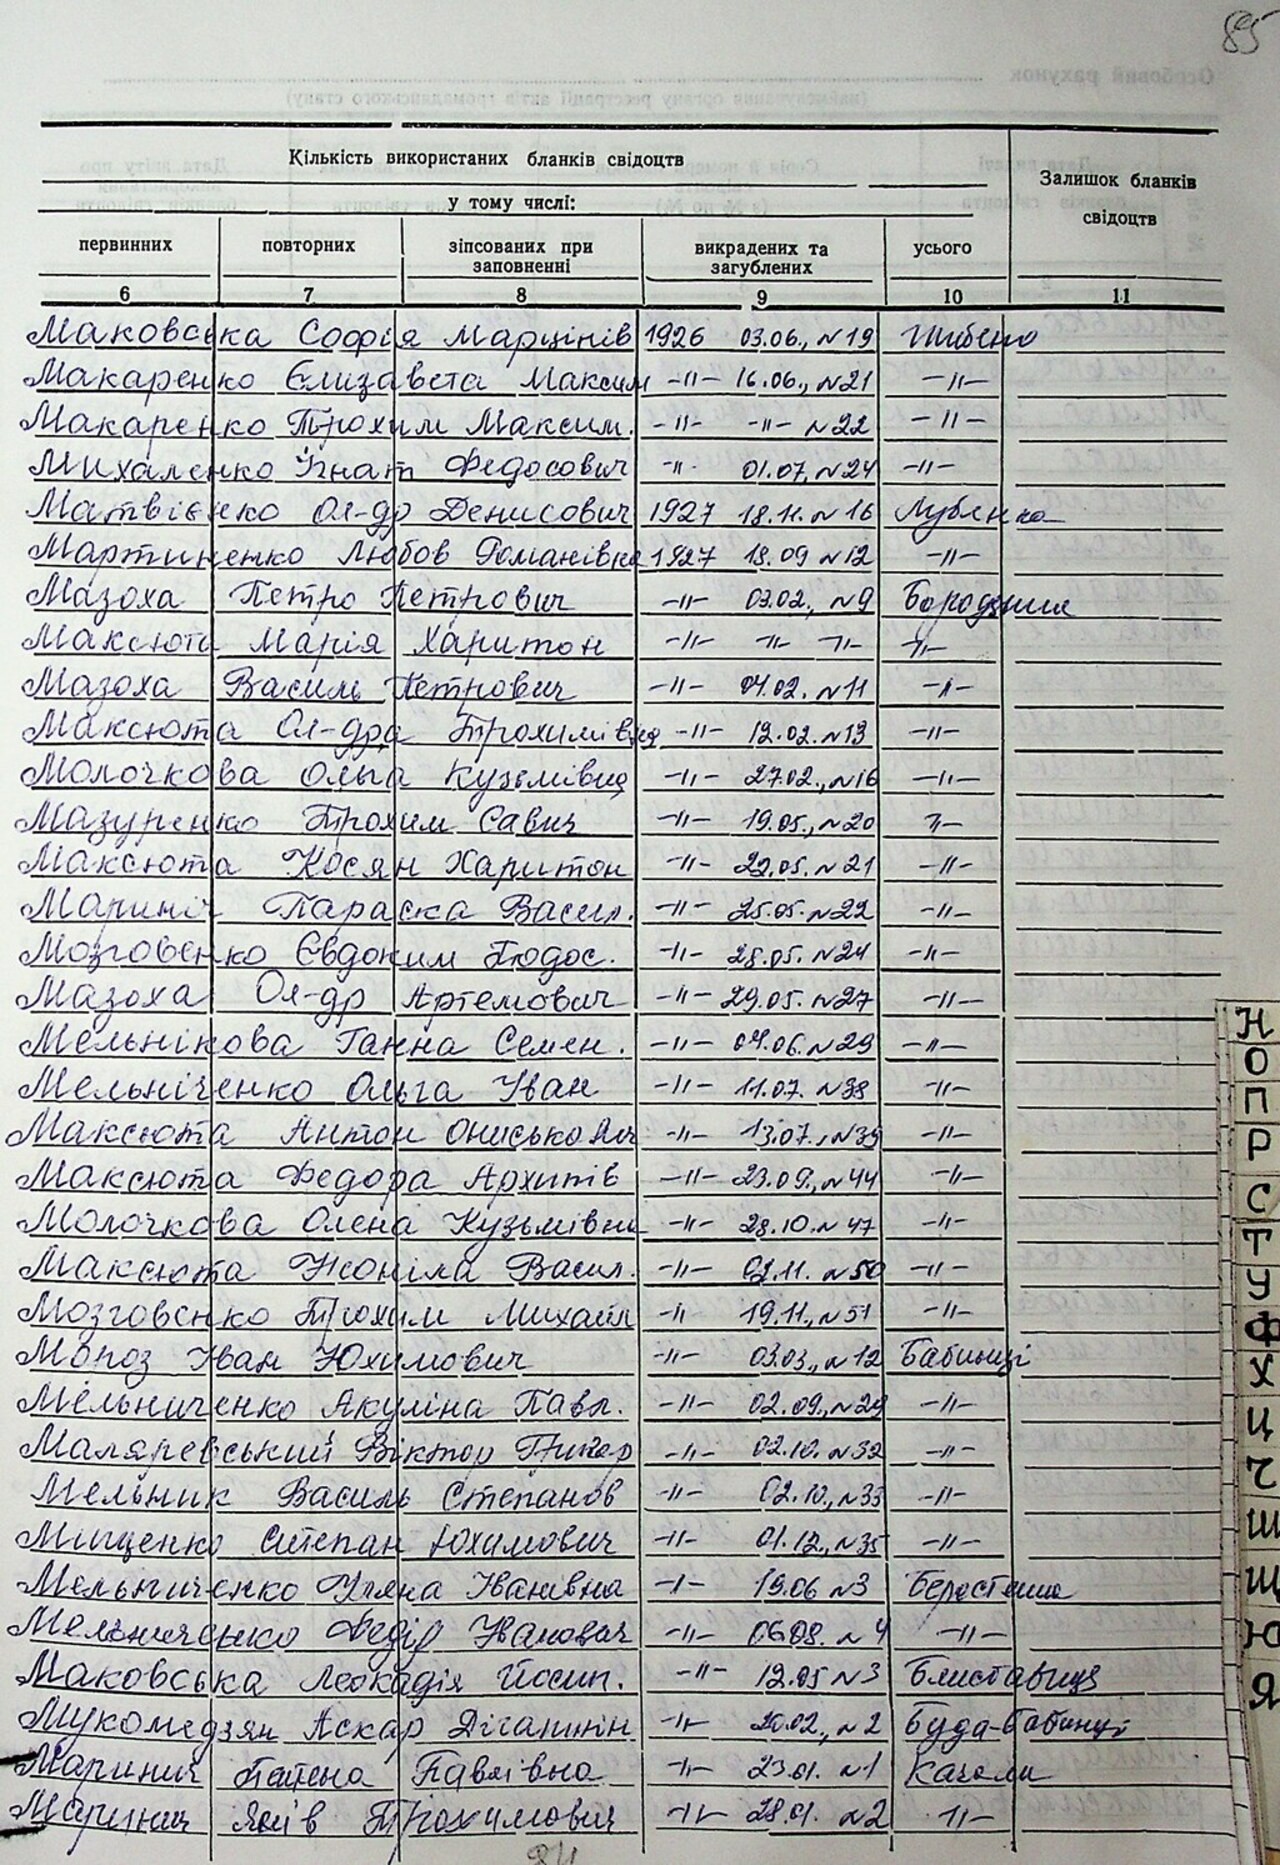 85
Кількість використаних бланків свідоцтв
Залишок бланків свідоцтв
у тому числі:
первинних повторних зіпсованих при заповненні викрадених та загублених усього
6 7 8 9 10 11
Маковська Софія Марцінів 1926 03.06., N19
Макаренко Єлизавета Максим -"- 16.06., N21 -"-
Макаренко Трохим Максим. -"- -"- N22 -"-
Михаленко Ігнат Федосович -"- 01.07, N24 -"-
Матвієнко Ол-др Денисович 1927 18.11. N16 Лубенка
Мартиненко Любов Романівна 1927 18.09 N12 -"-
Мазоха Петро Петрович -"- 03.02., N9 Бородянка
Максюта Марія Харитон -"- -"- -"- -"-
Мазоха Василь Петрович -"- 04.02. N11 -"-
Максюта Ол-дра Трохимівна -"- 12.02. N13 -"-
Молочкова Ольга Кузьмівна -"- 27.02., N16 -"-
Мазуренко Трохим Савич -"- 19.05., N20 -"-
Максюта Косян Харитон -"- 22.05. N21 -"-
Маринич Параска Васил. -"- 25.05. N22 -"-
Мозговенко Євдоким Тодос. -"- 28.05. N24 -"-
Мазоха Ол-др Артемович -"- 29.05. N27 -"-
Мельнікова Ганна Семен. -"- 04.06. N29 -"-
Мельніченко Ольга Іван -"- 11.07. N38 -"-
Максюта Антон -"- 13.07., N39 -"-
Максюта Федора Архипів -"- 23.09., N44 -"-
Молочкова Олена Кузьмівна -"- 28.10. N47 -"-
Максюта Васил. -"- 02.11. N50 -"-
Мозговенко Трохим Михайл -"- 19.11., N51 -"-
Мороз Іван Юхимович -"- 03.03., N12 Бабинці
Мельниченко Акуліна Павл. -"- 02.09., N29 -"-
Маляревський Віктор -"- 02.10. N32 -"-
Мельник Василь Степанов -"- 02.10., N33 -"-
Мищенко Степан Юхимович -"- 01.12., N35 -"-
Мельниченко Уляна Іванівна -"- 19.06 N3 Берестянка
Мельниченко Федір Іванович -"- 06.08. N4 -"-
Маковська Леокадія Йосип. -"- 12.05 N3 Блиставиця
Мукомедзян Аскар -"- 20.02., N2 Буда-Бабинці
Маринич Павлівна -"- 23.01. N1 Качали
Маринич Яків Трохимович -"- 28.01. N2 -"-
84
Н
О
П
Р
С
Т
У
Ф
Х
Ц
Ч
Ш
Щ
Ю
Я